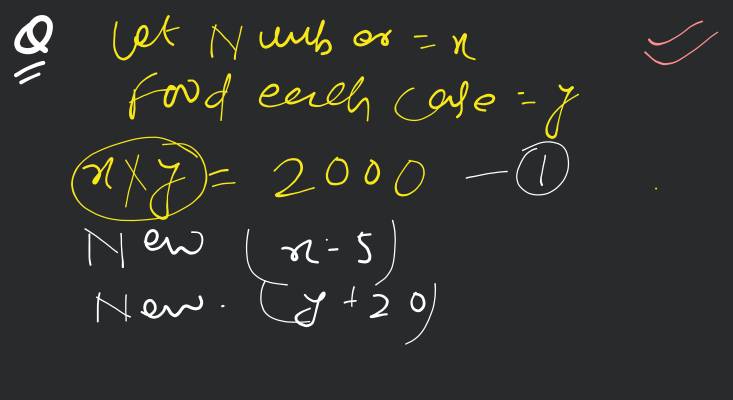 Q Let Number = x
Food each case = y
x × y = 2000 — 1
New (x - 5)
New. (y + 20)